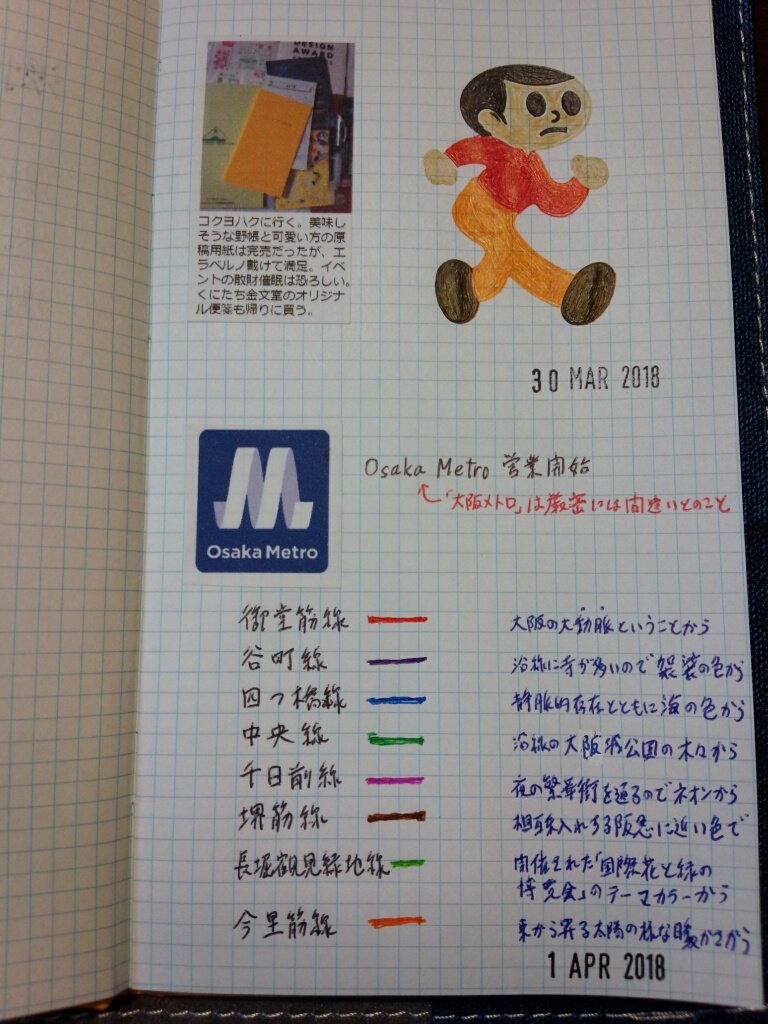 DESIGN
AWARD
コクヨハクに行く。美味し
そうな野帳と可愛い方の原
稿用紙は完売だったが、エ
ラベルノ戴けて満足。イベ
ントの散財催眠は恐ろしい。
くにたち金文堂のオリジナ
ル便箋も帰りに買う。
30 MAR 2018
Osaka Metro
Osaka Metro 営業開始
「大阪メトロ」は厳密には間違いとのこと
御堂筋線 大阪の大動脈ということから
谷町線 沿線に寺が多いので袈裟の色から
四つ橋線 静脈的存在とともに海の色から
中央線 沿線の大阪城公園の木々から
千日前線 夜の繁華街を通るのでネオンから
堺筋線 相互乗入れする阪急に近い色で
長堀鶴見緑地線 開催された「国際花と緑の
博覧会」のテーマカラーから
今里筋線 東から昇る太陽の様な暖かさから
1 APR 2018